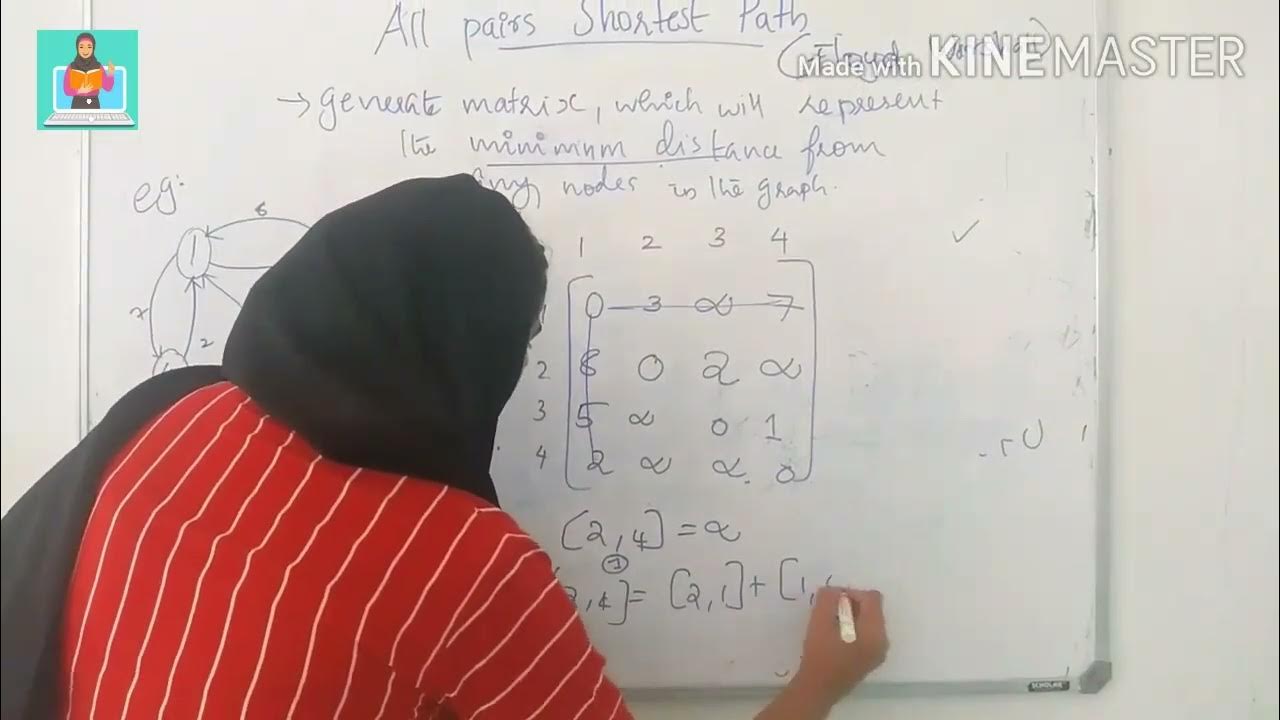 All pairs Shortest Path
Made with KINEMASTER
→ generate matrix, which will represent
the minimum distance from
any nodes in the graph.
eg:
6
1
7
2
1 2 3 4
0 3 ∝ 7
2 8 0 2 ∝
3 5 ∝ 0 1
4 2 ∝ ∝ 0
[2,4] = ∝
1
2,4] = [2,1] + [1,
SCHOLAR